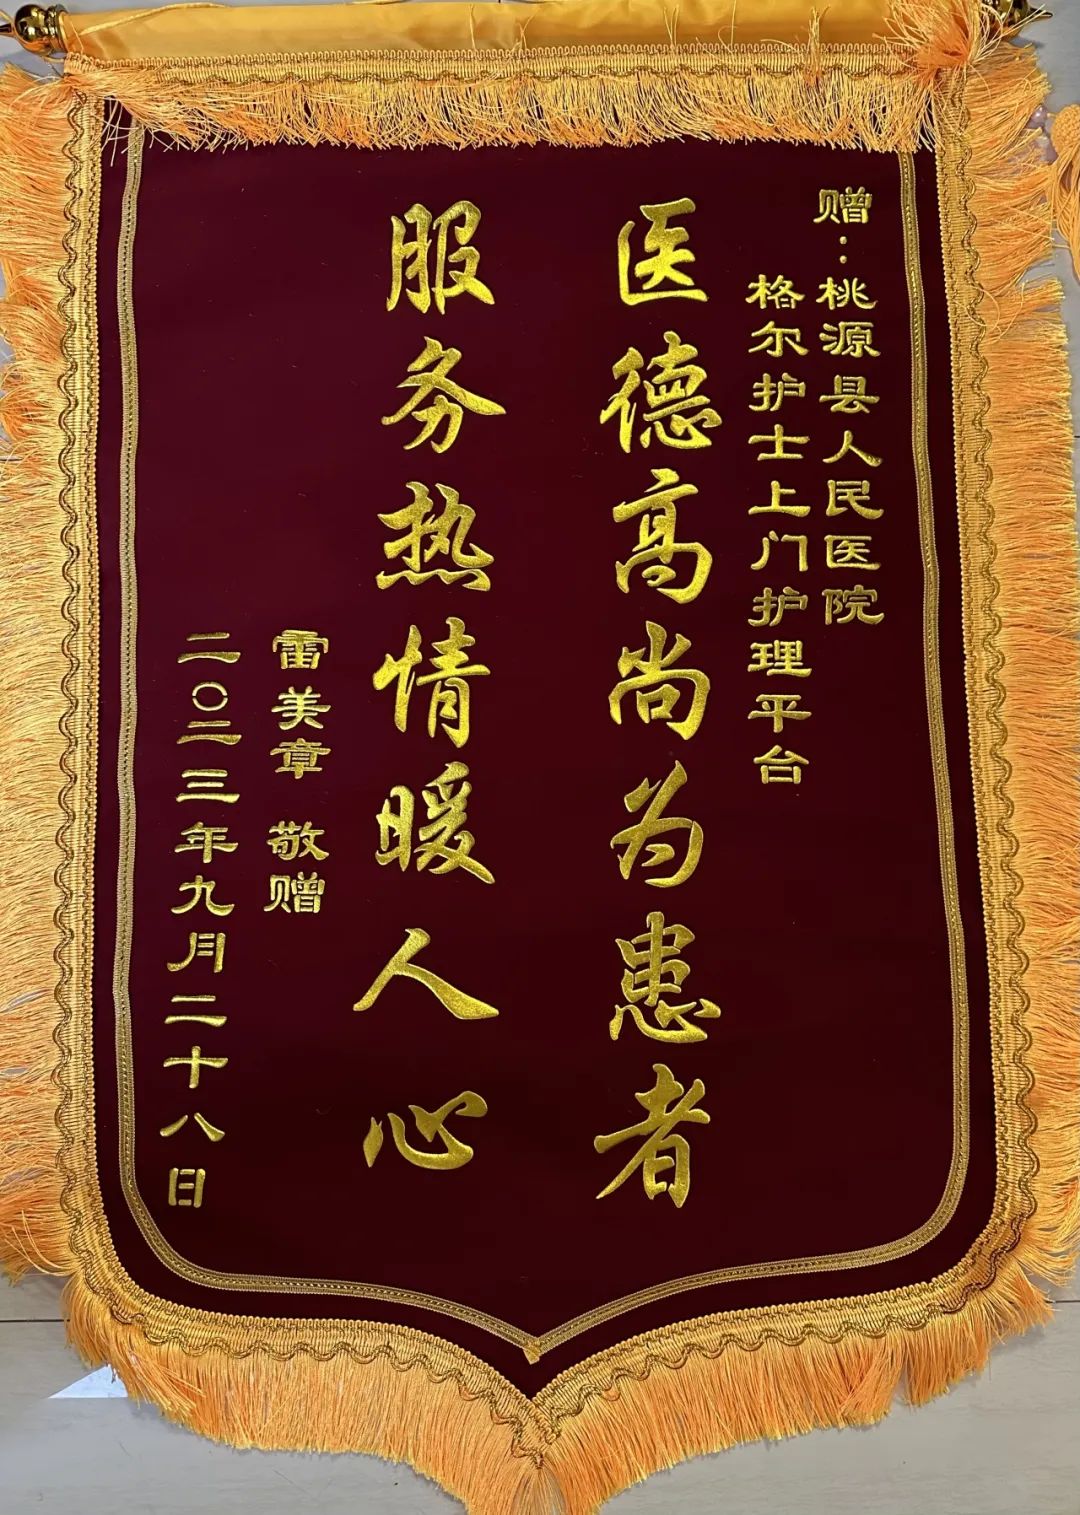 赠：桃源县人民医院
格尔护士上门护理平台
医德高尚为患者
服务热情暖人心
雷美章 敬赠
二〇二三年九月二十八日